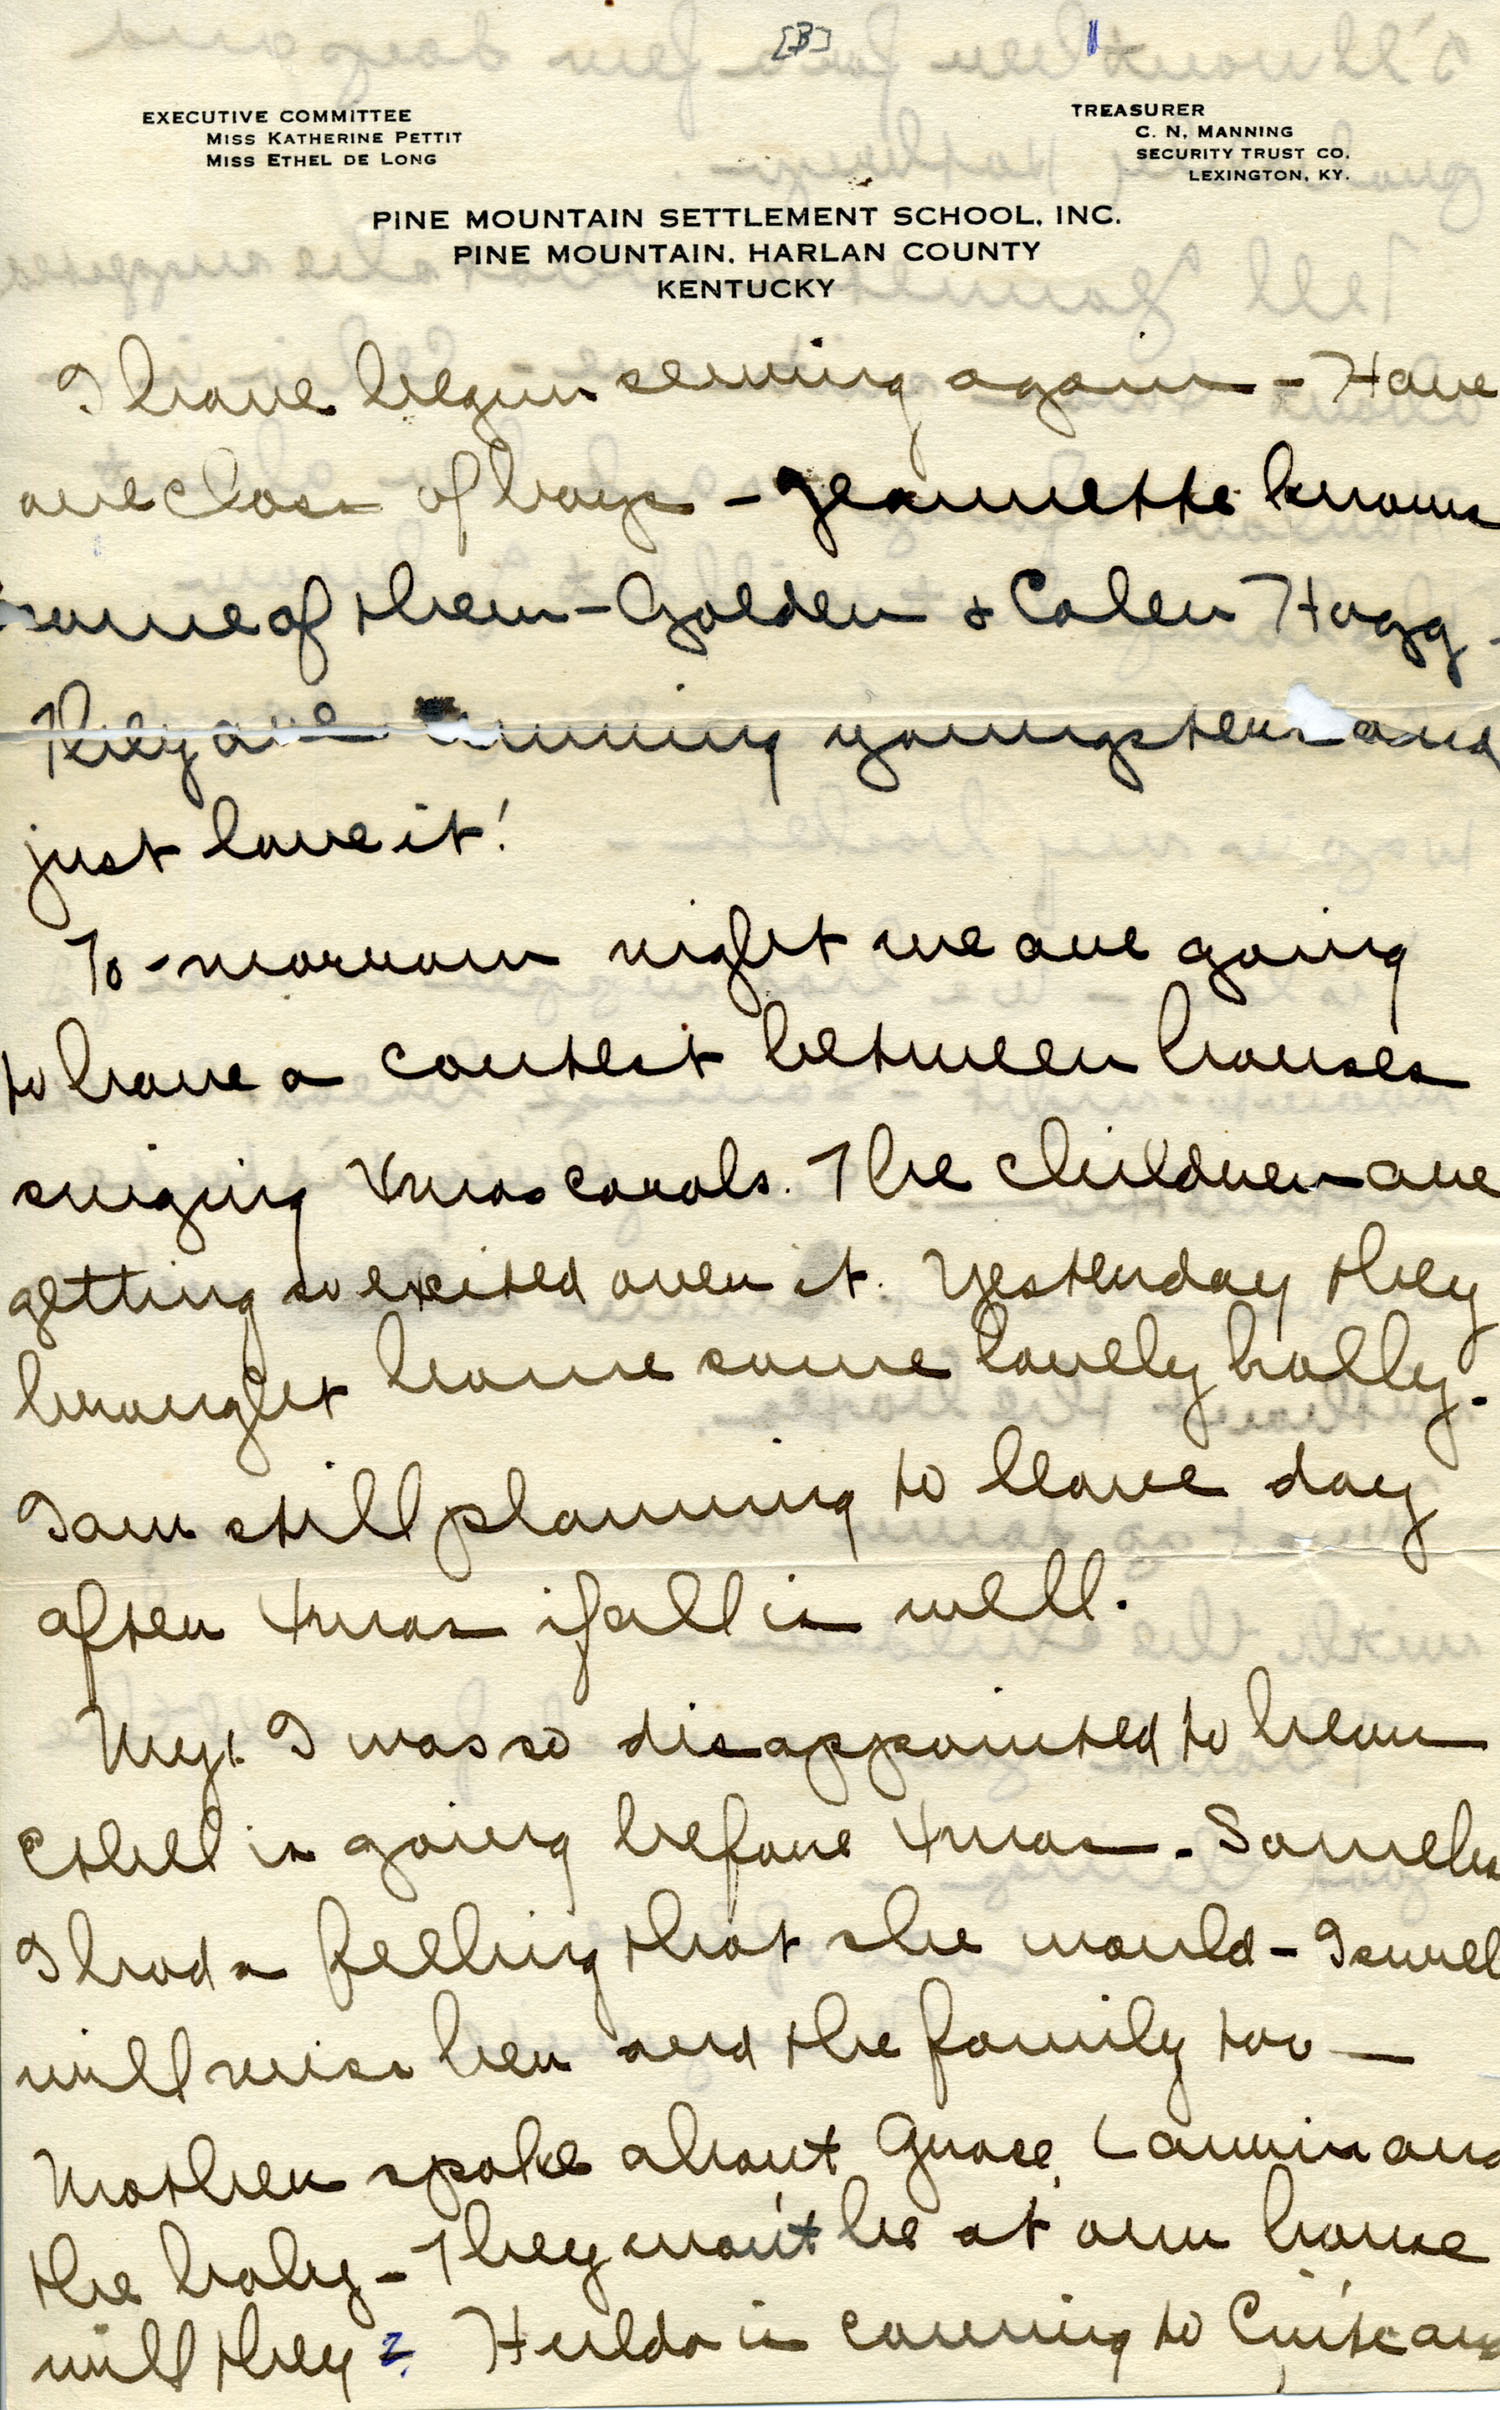 [B]
EXECUTIVE COMMITTEE
MISS KATHERINE PETTIT
MISS ETHEL DE LONG
TREASURER
C. N. MANNING
SECURITY TRUST CO.
LEXINGTON, KY.
PINE MOUNTAIN SETTLEMENT SCHOOL, INC.
PINE MOUNTAIN, HARLAN COUNTY
KENTUCKY
I have begun sewing again - Have
one class of boys - Jeannette knows
some of them - Golden & Colen Hogg -
They are cunning youngsters and
just love it!
To-morrow night we are going
to have a contest between houses
singing Xmas carols. The children are
getting so excited over it. Yesterday they
brought home some lovely holly.
I am still planning to leave day
after Xmas if all is well.
My! I was so disappointed to hear
Ethel is going before Xmas - Somehow
I had a feeling that she would - I surel
will miss her and the family too —
Mother spoke about Grace, and
the baby - They won't be at our house
will they? Hulda is coming to